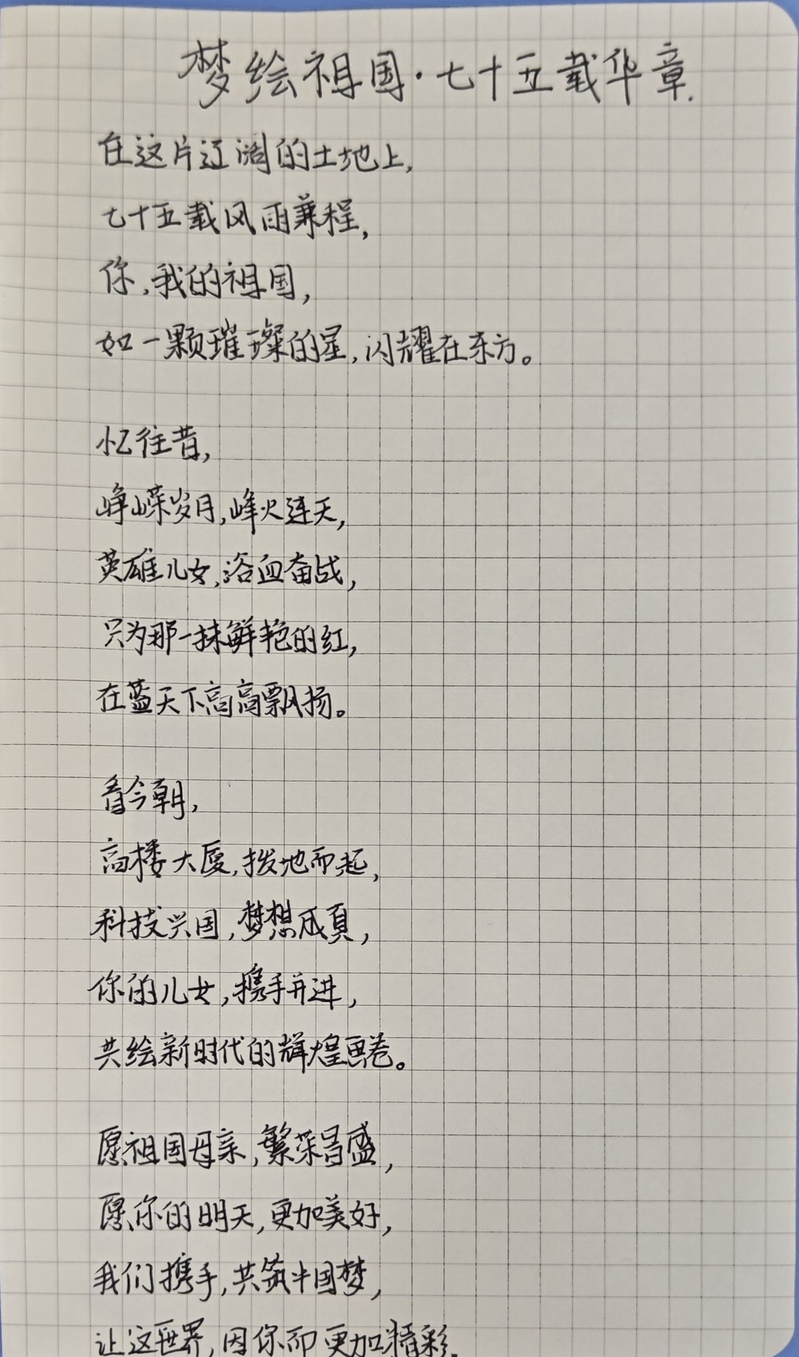 梦绘祖国·七十五载华章.
在这片辽阔的土地上,
七十五载风雨兼程,
你,我的祖国,
如一颗璀璨的星,闪耀在东方。
忆往昔,
峥嵘岁月,烽火连天,
英雄儿女,浴血奋战,
只为那一抹鲜艳的红,
在蓝天下高高飘扬。
看今朝,
高楼大厦,拔地而起,
科技兴国,梦想成真,
你的儿女,携手并进,
共绘新时代的辉煌画卷。
愿祖国母亲,繁荣昌盛,
愿你的明天,更加美好,
我们携手,共筑中国梦,
让这世界,因你而更加精彩.